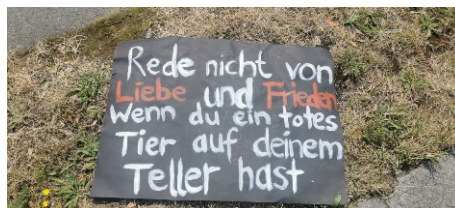 Rede nicht von
Liebe und Frieden
Wenn du ein totes
Tier auf deinem
Teller hast